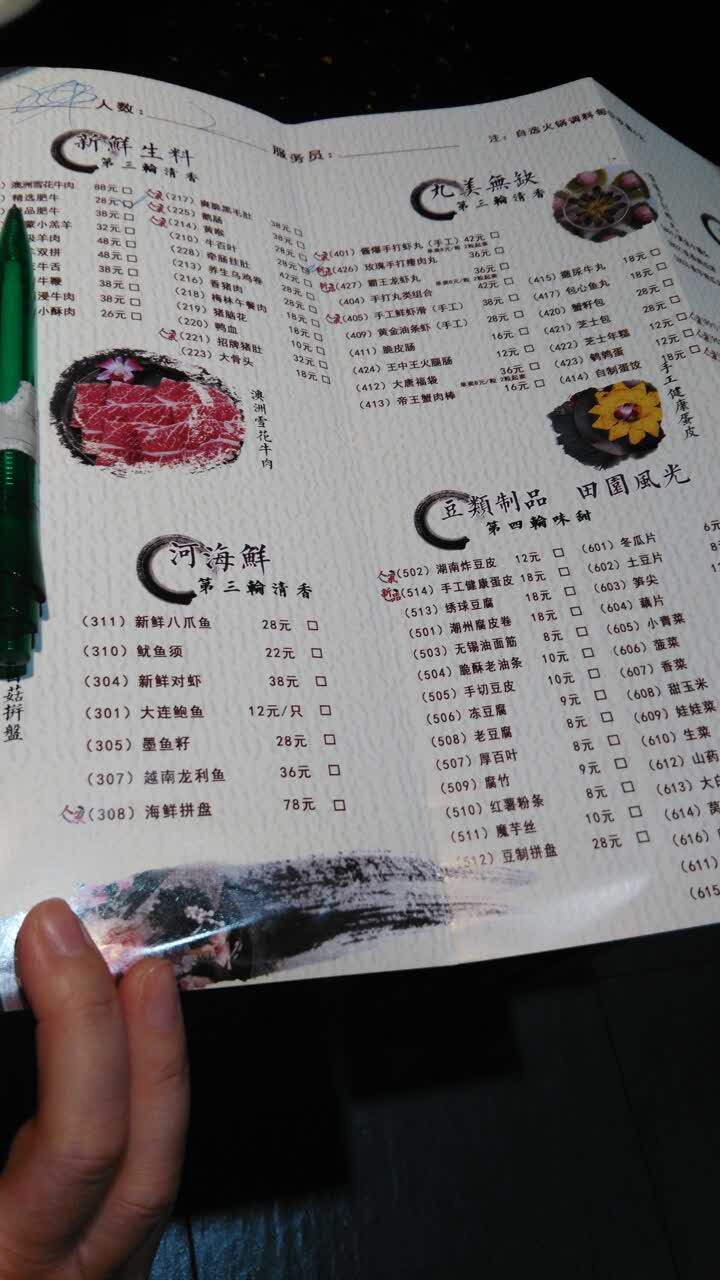 人数:
服务员:
注: 自选火锅调料每
新鮮生料
第三輪清香
澳洲雪花牛肉 88元
精选肥牛 28元
品肥牛 38元
蒙小羔羊 32元
级羊肉 48元
双拼 48元
牛舌 38元
牛鞭 38元
浸牛肉 38元
小酥肉 26元
(217) 爽脆黑毛肚 38元
(225) 鹅肠 38元
(214) 黄喉 28元
(210) 牛百叶 28元
(228) 牵肠挂肚 42元
(213) 养生乌鸡卷 28元
(216) 香猪肉 28元
(218) 梅林午餐肉 28元
(219) 猪脑花 18元
(220) 鸭血 10元
(221) 招牌猪肚 32元
(223) 大骨头 18元
澳洲雪花牛肉
丸美無缺
第三輪清香
(401) 酱爆手打虾丸 (手工) 42元
(426) 玫瑰手打瘦肉丸 36元
(427) 霸王龙虾丸 36元
(404) 手打丸类组合 42元
(405) 手工鲜虾滑 (手工) 38元
(409) 黄金油条虾 (手工) 28元
(411) 脆皮肠 16元
(424) 王中王火腿肠 12元
(412) 大唐福袋 36元
(413) 帝王蟹肉棒 16元
(415) 撒尿牛丸 18元
(417) 包心鱼丸 18元
(420) 蟹籽包 18元
(421) 芝士包 12元
(422) 芝士年糕 12元
(423) 鹌鹑蛋 12元
(414) 自制蛋饺 18元
手工健康蛋皮
河海鮮
第三輪清香
(311) 新鲜八爪鱼 28元
(310) 鱿鱼须 22元
(304) 新鲜对虾 38元
(301) 大连鲍鱼 12元/只
(305) 墨鱼籽 28元
(307) 越南龙利鱼 36元
(308) 海鲜拼盘 78元
菇拼盤
豆類制品 田園風光
第四輪味甜
(502) 湖南炸豆皮 12元
(514) 手工健康蛋皮 18元
(513) 绣球豆腐 18元
(501) 潮州腐皮卷 18元
(503) 无锡油面筋 8元
(504) 脆酥老油条 10元
(505) 手切豆皮 10元
(506) 冻豆腐 9元
(508) 老豆腐 8元
(507) 厚百叶 8元
(509) 腐竹 9元
(510) 红薯粉条 8元
(511) 魔芋丝 10元
(512) 豆制拼盘 28元
(601) 冬瓜片 6元
(602) 土豆片
(603) 笋尖
(604) 藕片
(605) 小青菜
(606) 菠菜
(607) 香菜
(608) 甜玉米
(609) 娃娃菜
(610) 生菜
(612) 山药
(613) 大白
(614) 茼
(616)
(611)
(615